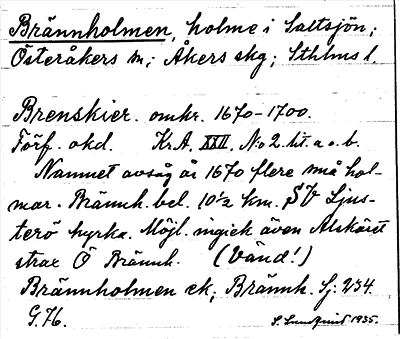 Brännholmen, holme i Saltsjön;
Österåkers sn; Åkers skg; Sthlms l.
Brenskier. omkr. 1670-1700.
Förf. okd. Kr.A. XXII, No 2. lit. a o. b.
Namnet avsåg år 1670 flere små hol-
mar. Brännh. bel. 10½ km. SV Ljus-
terö kyrka. Möjl. ingick även Alskäret
strax Ö Brännh. (Vänd!)
Brännholmen ek; Brännh. Sj: 234.
G. 76. S. Lundquist 1935.